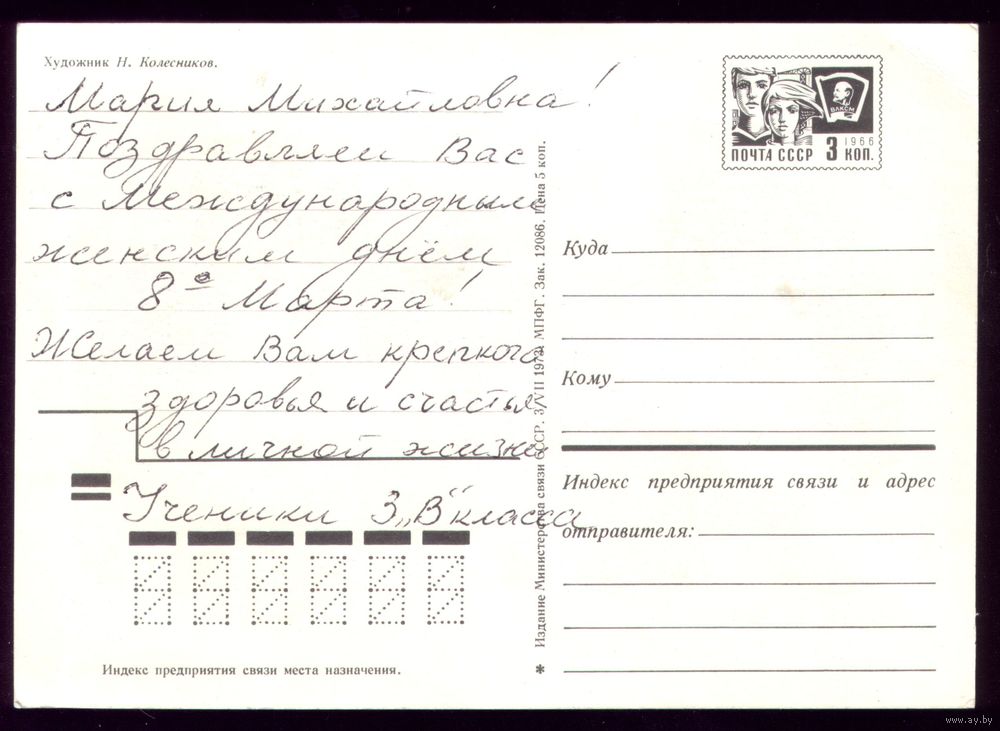 Художник Н. Колесников.
Мария Михайловна!
Поздравляем Вас
с Международным
женским днём
8е Марта!
Желаем Вам крепкого
здоровья и счастья
в личной жизни
Ученики 3 „В" класса
Индекс предприятия связи места назначения.
Издание Министерства связи СССР. 3/VII 1973. МПФГ. Зак. 12086. Цена 5 коп.
ВЛКСМ
1966
ПОЧТА СССР 3 КОП.
Куда
Кому
Индекс предприятия связи и адрес
отправителя:
www.ay.by